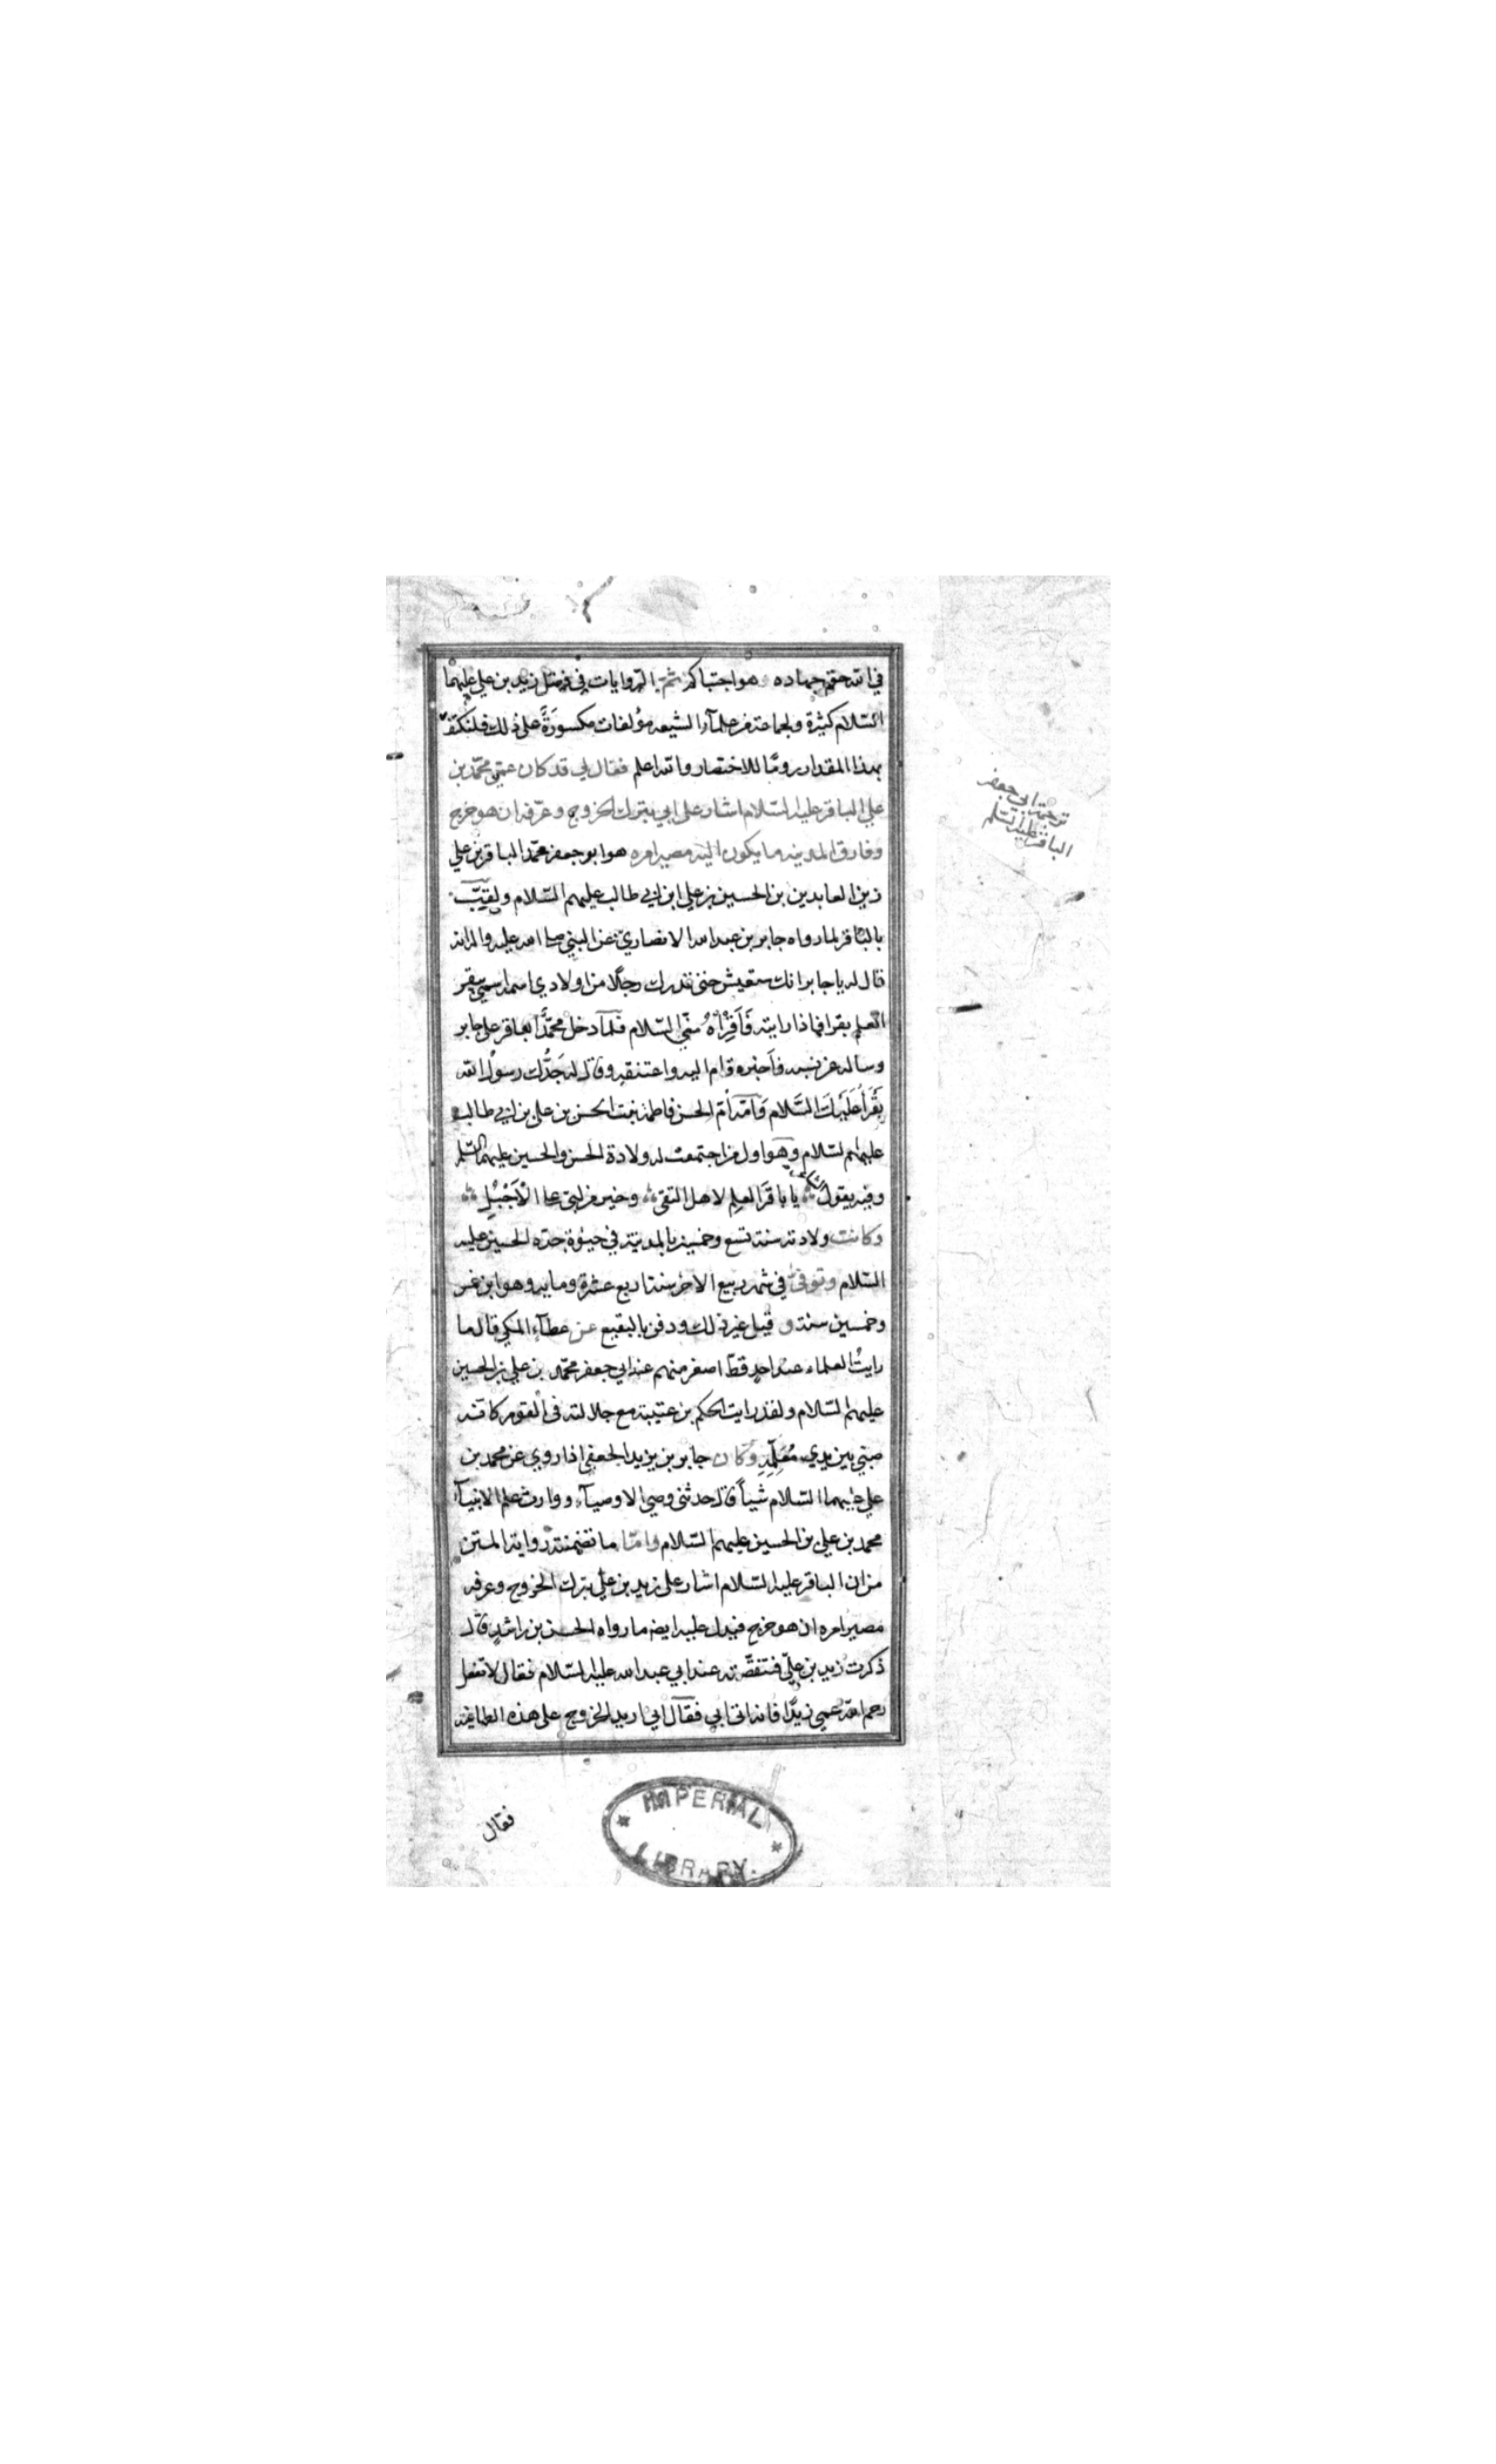 في الله حق جهاده هو اجتباكم ثم الروايات في فضل زيد بن علي عليهما
السّلام كثيرة ولجماعة من علمآء الشيعه مؤلفات مكسورة على ذلك فلنكتف
بهذا المقدار رومًا للاختصار والله اعلم فقال لي قد كان عمّي محمّد بن
علي الباقر عليه السّلام اشار على ابي بترك الخروج وعرّفه ان هو خرج
وفارق المدينه ما يكون اليه مصير امره هو ابو جعفر محمّد الباقر بن علي
زين العابدين بن الحسين بن علي ابن ابي طالب عليهم السّلام ولقب
بالباقر لما رواه جابر بن عبد الله الانصاري عن النبي صلى الله عليه واله انه
قال له يا جابر انك ستعيش حتى تدرك رجلًا من اولادي اسمه اسمي يبقر
العلم بقرا فاذا رايته فَاَقْرِأْهُ منّي السّلام فلمّا دخل محمّد الباقر على جابر
وساله عن نسبه فاَخبره قام اليه واعتنقه وقال له جَدُّك رسولُ الله
يَقْرَأُ عَلَيْكَ السَّلام وَاُمّه اُمّ الحسن فاطمة بنت الحسن بن علي بن ابي طالب
عليهم السّلام وهو اول من اجتمعت له ولادة الحسن والحسين عليهما السّلم
وفيه يقول الشاعر يا باقَر العلِم لاهل التقى وخير من لبّى على الْاَجْبُلِ
وكانت ولادته سنة تسع وخمسين بالمدينة في حيوة جدّه الحسين عليه
السّلام وتوفي في شهر ربيع الاخر سنة اربع عشرة ومايه وهو ابن خمس
وخمسين سنة و قيل غير ذلك ودفن بالبقيع عن عطآء المكي قال ما
رايتُ العلماء عند احدٍ قطّ اصغر منهم عند ابي جعفر محمّد بن علي بن الحسين
عليهم السّلام ولقد رايت الحكم بن عتيبة مع جلالته في القوم كانه
صبّي بين يدي مُعَلِّمِهِ وكان جابر بن يزيد الجعفي اذا روي عن محمد بن
علي عليهما السّلام شيأً قال حدثني وصي الاوصيآء ووارث علم الانبيآء
محمد بن علي بن الحسين عليهم السّلام وامّا ما تضمنته رواية المتن
من ان الباقر عليه السّلام اشار على زيد بن علي بترك الخروج وعرفه
مصير امره ان هو خرج فيدل عليه ايضا ما رواه الحسن بن راشدٍ قال
ذكرت زيد بن عليّ فتنقّصته عند ابي عبد الله عليه السّلام فقال لا تفعل
رحم الله عمي زيدًا فانه اتى ابي فقال اني اريد الخروج على هذه الطاغيه
فقال
ترجمة ابي جعفر
الباقر عليه السّلم
IMPERIAL
LIBRARY.